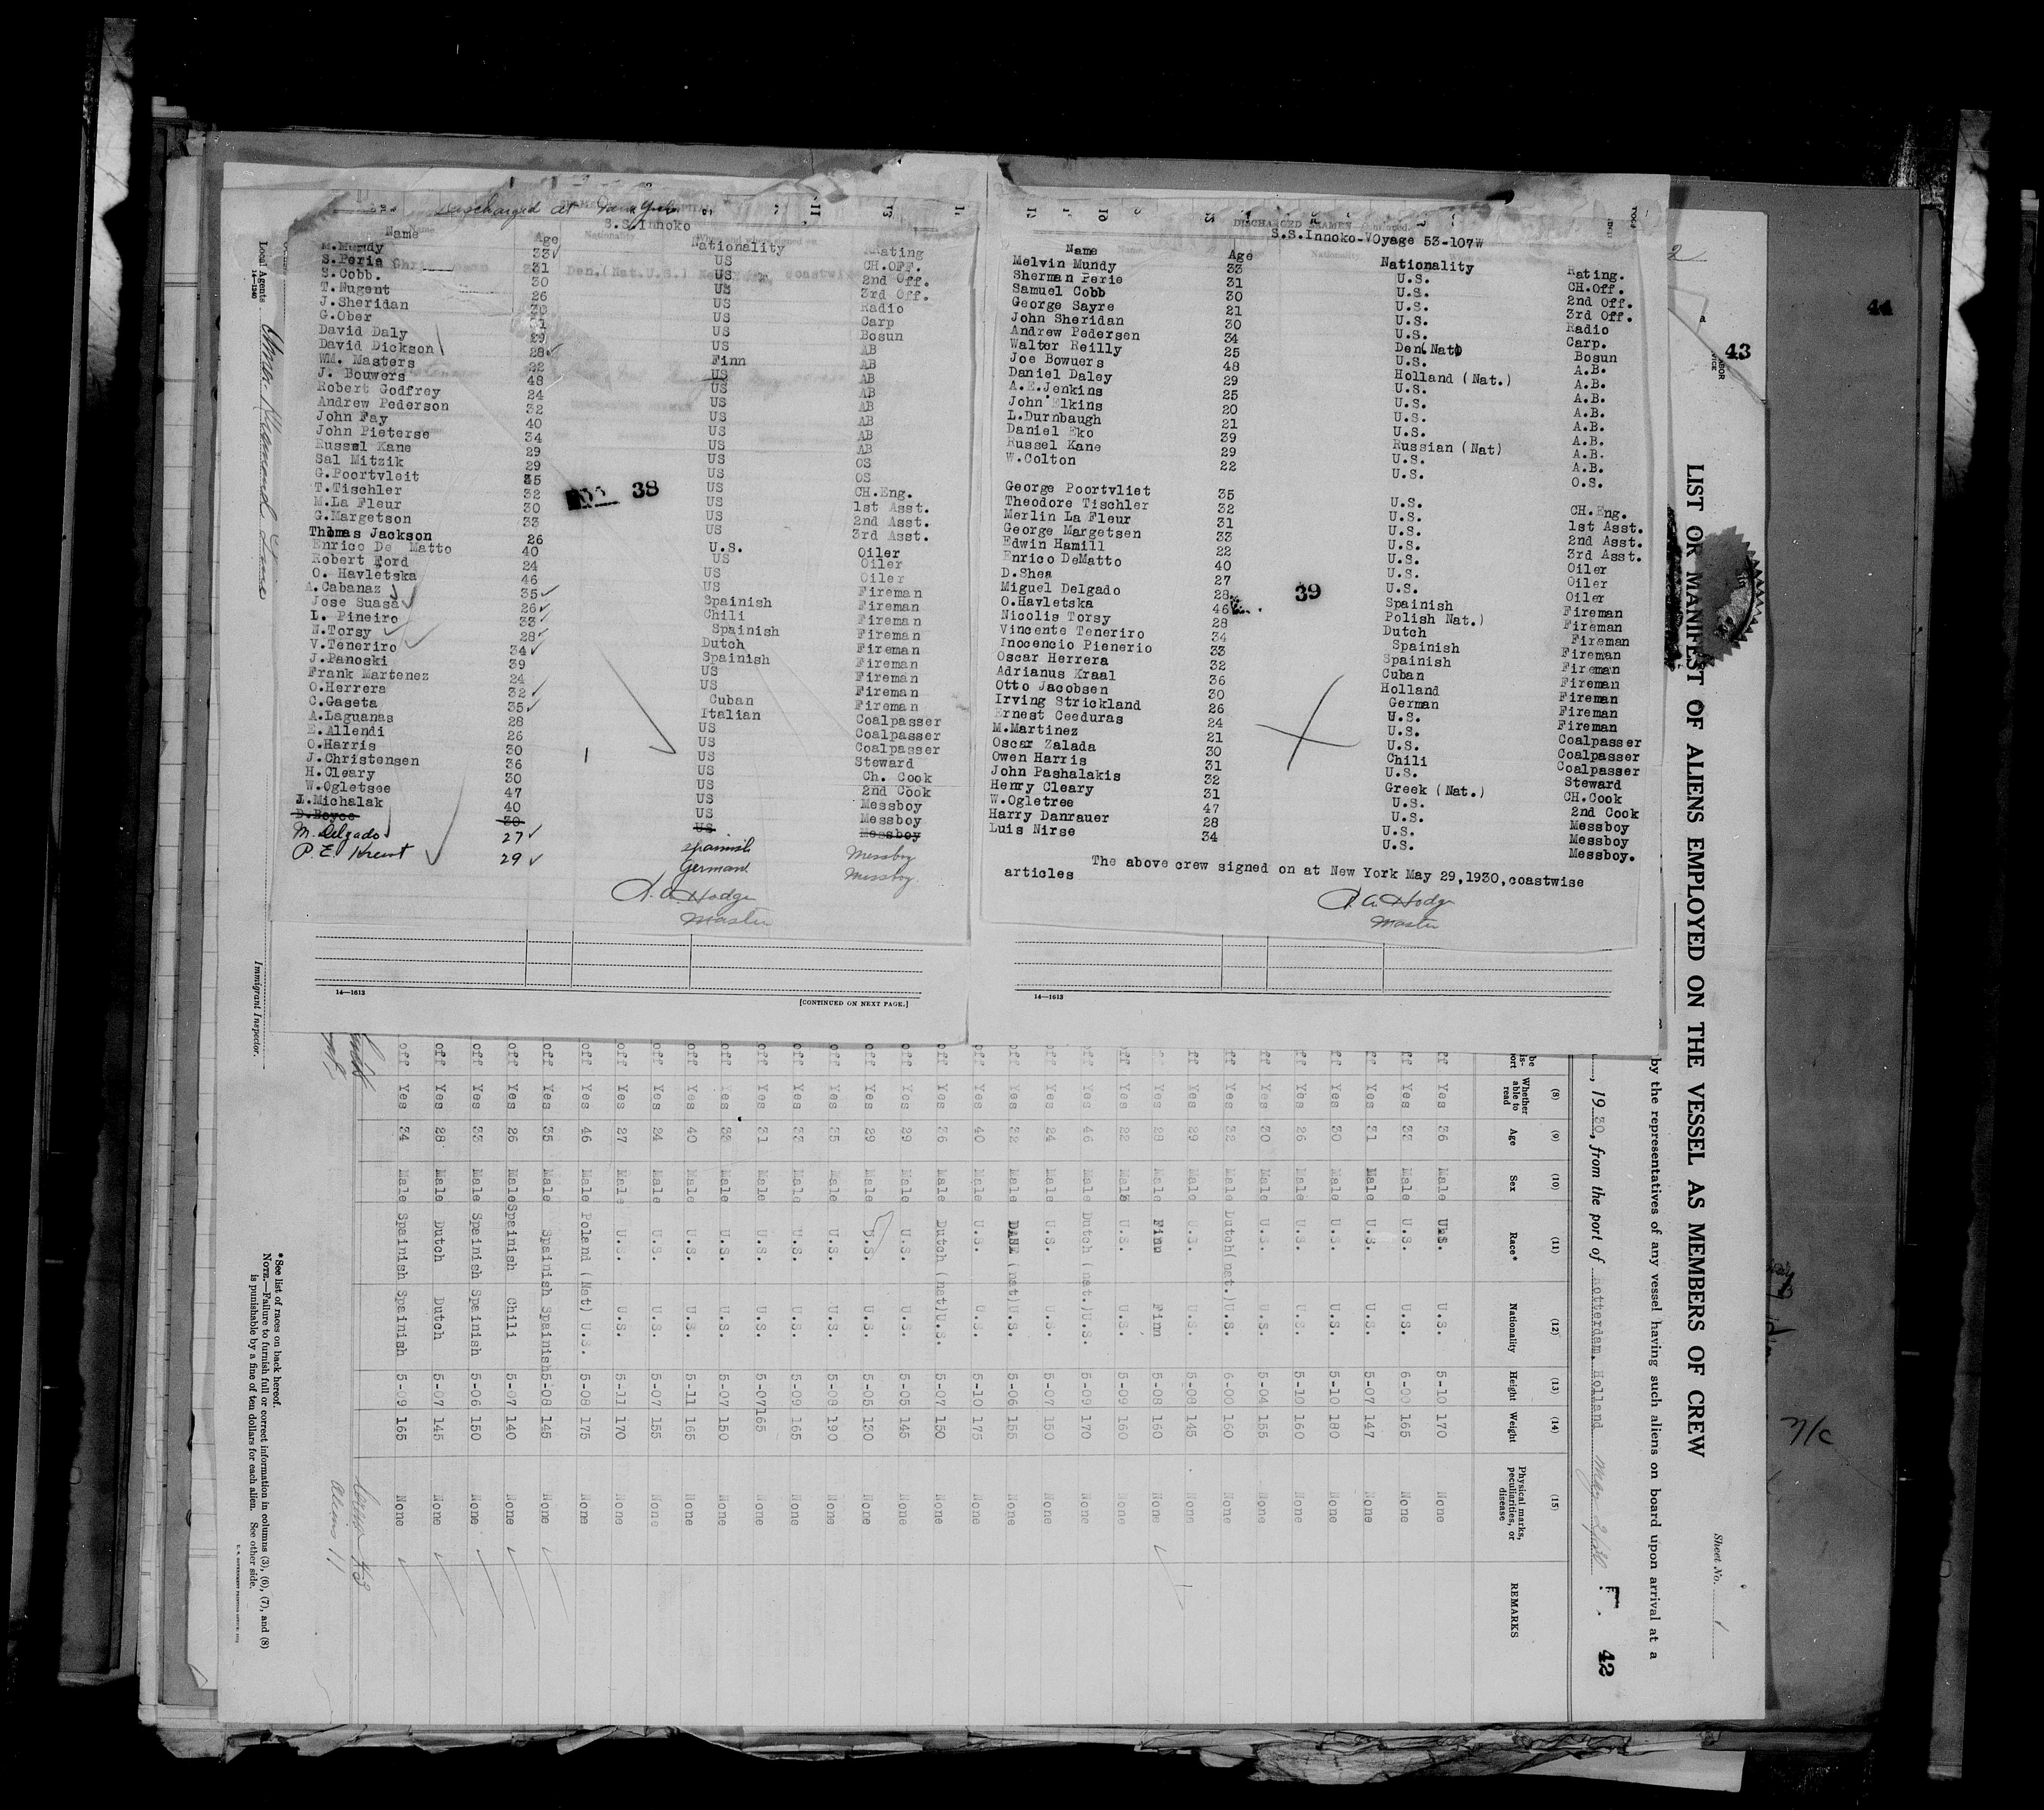 Discharged at New York
S.S.Innoko
Name Age Nationality Rating
M.Mundy 33 US CH.OFF.
S.Perie 31 US 2nd Off.
S.Cobb. 30 US 3rd Off.
T.Nugent 26 US Radio
J.Sheridan 30 US Carp
G.Ober US Bosun
David Daly 29 US AB
David Dickson 28 Finn AB
WM. Masters 22 US AB
J. Bouwers 48 US AB
Robert Godfrey 24 US AB
Andrew Pederson 32 US AB
John Fay 40 US AB
John Pieterse 34 US AB
Russel Kane 29 US OS
Sal Mitzik 29 US OS
G.Poortvleit 35 US CH.Eng.
T.Tischler 32 US 1st Asst.
M.La Fleur 30 US 2nd Asst.
G.Margetson 33 US 3rd Asst.
Thomas Jackson 26 U.S. Oiler
Enrico De Matto 40 US Oiler
Robert Ford 24 US Oiler
O. Havletska 46 US Fireman
A.Cabanaz 35 Spainish Fireman
Jose Suasa 26 Chili Fireman
L. Pineiro 33 Spainish Fireman
N.Torsy 28 Dutch Fireman
V.Teneriro 34 Spainish Fireman
J.Panoski 39 US Fireman
Frank Martenez 24 US Fireman
O.Herrera 32 Cuban Fireman
C.Gaseta 35 Italian Coalpasser
A.Laguanas 28 US Coalpasser
E.Allendi 26 US Coalpasser
O.Harris 30 US Steward
J.Christensen 36 US Ch. Cook
H.Cleary 30 US 2nd Cook
W.Ogletsee 47 US Messboy
L.Michalak 40 US Messboy
D.Boyce 30 US Messboy
M. Delgado 27 Spainish Messboy
P.E. 29 German Messboy
A. A. Hodge
Master
38
14—1613 [CONTINUED ON NEXT PAGE.]
DISCHARGED SEAMEN
S.S.Innoko-VOyage 53-107W
Name Age Nationality Rating.
Melvin Mundy 33 U.S. CH.Off.
Sherman Perie 31 U.S. 2nd Off.
Samuel Cobb 30 U.S. 3rd Off.
George Sayre 21 U.S. Radio
John Sheridan 30 U.S. Carp.
Andrew Pedersen 34 Den(Nat) Bosun
Walter Reilly 25 U.S. A.B.
Joe Bowuers 48 Holland (Nat.) A.B.
Daniel Daley 29 U.S. A.B.
A.E.Jenkins 25 U.S. A.B.
John Elkins 20 U.S. A.B.
L.Durnbaugh 21 U.S. A.B.
Daniel Eko 39 Russian (Nat) A.B.
Russel Kane 29 U.S. A.B.
W.Colton 22 U.S. O.S.
George Poortvliet 35 U.S. CH.Eng.
Theodore Tischler 32 U.S. 1st Asst.
Merlin La Fleur 31 U.S. 2nd Asst.
George Margetsen 33 U.S. 3rd Asst.
Edwin Hamill 22 U.S. Oiler
Enrico DeMatto 40 U.S. Oiler
D.Shea 27 U.S. Oiler
Miguel Delgado 28 Spainish Fireman
O.Havletska 46 Polish Nat.) Fireman
Nicolis Torsy 28 Dutch Fireman
Vincente Teneriro 34 Spainish Fireman
Inocencio Pienerio 33 Spainish Fireman
Oscar Herrera 32 Cuban Fireman
Adrianus Kraal 36 Holland Fireman
Otto Jacobsen 30 German Fireman
Irving Strickland 26 U.S. Fireman
Ernest Ceeduras 24 U.S. Coalpasser
M.Martinez 21 U.S. Coalpasser
Oscar Zalada 30 Chili Coalpasser
Owen Harris 31 U.S. Steward
John Pashalakis 32 Greek (Nat.) CH.Cook
Henry Cleary 31 U.S. 2nd Cook
W.Ogletree 47 U.S. Messboy
Harry Danrauer 28 U.S. Messboy
Luis Nirse 34 U.S. Messboy.
The above crew signed on at New York May 29,1930,coastwise
articles
A. A. Hodge
Master
39
14—1613
2
44
43
Sheet No. 1
LIST OR MANIFEST OF ALIENS EMPLOYED ON THE VESSEL AS MEMBERS OF CREW
by the representatives of any vessel having such aliens on board upon arrival at a
, 1930, from the port of Rotterdam, Holland May 2/30
F. 42
(8) (9) (10) (11) (12) (13) (14) (15)
Whether able to read Age Sex Race* Nationality Height Weight Physical marks, peculiarities, or disease REMARKS
Yes 36 Male U.S. U.S. 5-10 170 None
off Yes 33 Male U.S. U.S. 6-00 165 None
off Yes 31 Male U.S. U.S. 5-07 147 None
off Yes 30 Male U.S. U.S. 5-10 180 None
off Yes 26 Male U.S. U.S. 5-10 160 None
off Yes 30 Male U.S. U.S. 5-04 155 None
off Yes 32 Male Dutch(nat.)U.S. 6-00 160 None
off Yes 29 Male U.S. U.S. 5-08 145 None
Yes 28 Male Finn Finn 5-08 160 None
off Yes 22 Male U.S. U.S. 5-09 160 None
off Yes 46 Male Dutch (nat.)U.S. 5-09 170 None
off Yes 24 Male U.S. U.S. 5-07 150 None
off Yes 32 Male DANE (nat)U.S. 5-06 155 None
off Yes 40 Male U.S. U.S. 5-10 175 None
off Yes 36 Male Dutch (nat)U.S. 5-07 150 None
off Yes 29 Male U.S. U.S. 5-05 145 None
off Yes 29 Male U.S. U.S. 5-05 130 None
off Yes 35 Male U.S. U.S. 5-08 190 None
off Yes 33 Male U.S. U.S. 5-09 165 None
off Yes 31 Male U.S. U.S. 5-07165 None
off Yes 33 Male U.S. U.S. 5-07 150 None
off Yes 40 Male U.S. U.S. 5-11 165 None
off Yes 24 Male U.S. U.S. 5-07 155 None
off Yes 27 Male U.S. U.S. 5-11 170 None
off Yes 46 Male Poland (Nat) U.S. 5-08 175 None
off Yes 35 Male Spainish Spainish5-08 145 None
off Yes 26 MaleSpainish Chili 5-07 140 None
off Yes 33 Male Spainish Spainish 5-06 150 None
off Yes 28 Male Dutch Dutch 5-07 145 None
off Yes 34 Male Spainish Spainish 5-09 165 None
Crew 43
Aliens 11
*See list of races on back hereof.
NOTE.—Failure to furnish full or correct information in columns (3), (6), (7), and (8)
is punishable by a fine of ten dollars for each alien. See other side.
Local Agents
14—1240
Immigrant Inspector.
n/c